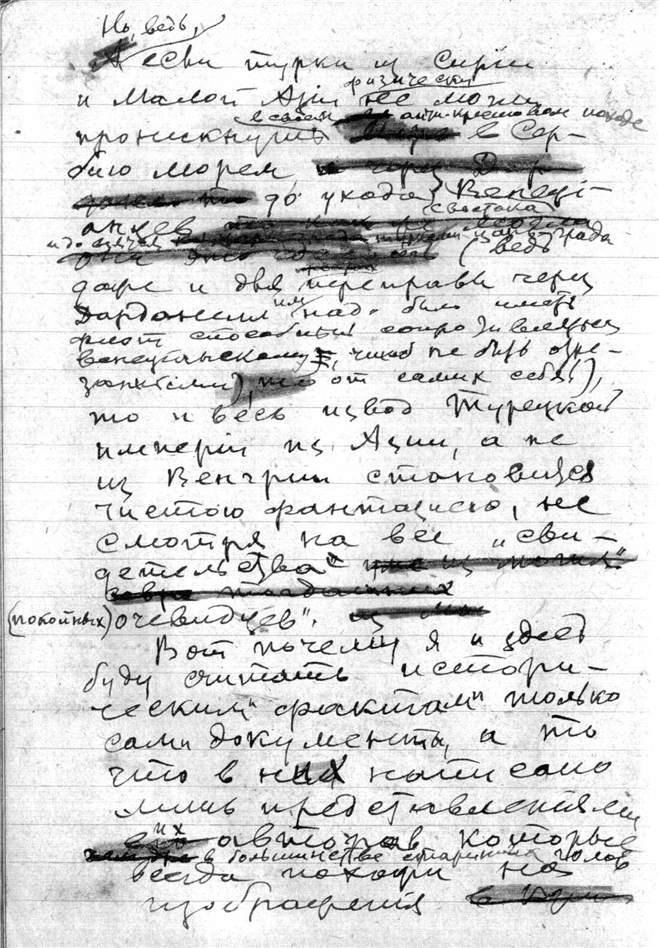 Но, ведь,
если турки из Сирии
физически
и Малой Азии не могли
в своем анти-крестовом походе
проникнуть в Сер-
бию морем
до ухода Венеці-
с востока
анцев
Царь-града
(ведь
даже и для переправы через
им
Дарданеллы надо было иметь
флот способный сопротивляться
венецианскому, чтоб не быть отре-
занными), от самих себя),
то и весь извод Турецкой
империи из Азии, а не
из Венгрии становится
чистою фантазиею, не
смотря на все „сви-
детельства“
(покойных) очевидцев“.
Вот почему я и здесь
буду считать истори-
ческим „фактом“ только
сами документы, а то
что в них написано
лишь представлениями
их авторов которые
в большинстве старинных голов
всегда похожи на
изображения